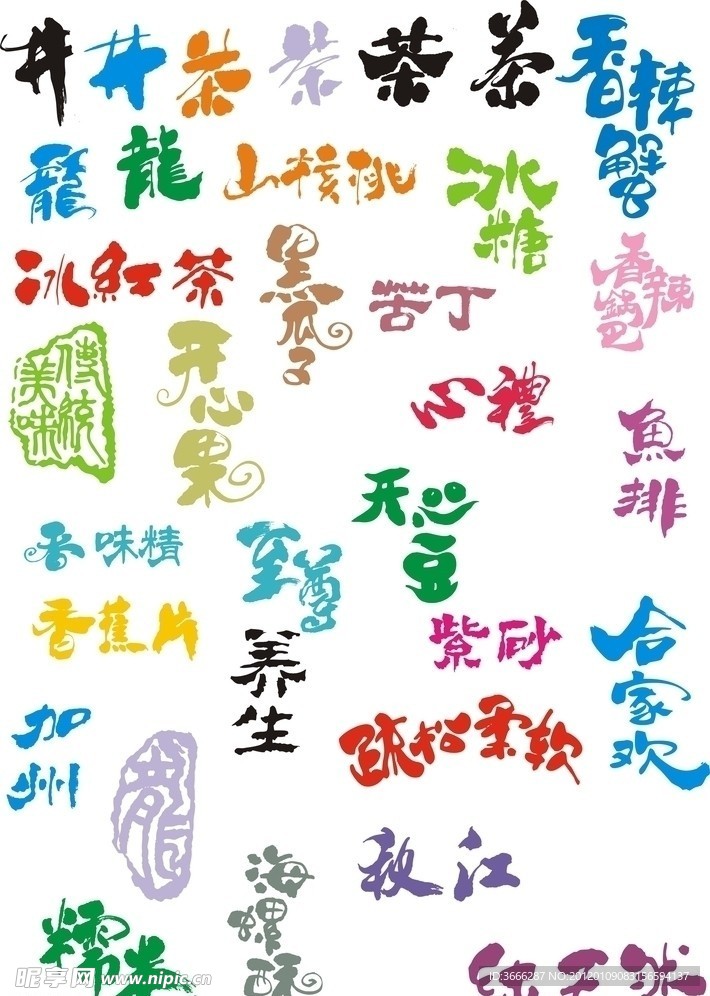 井
井
茶
茶
茶
茶
香辣蟹
龍
龍
山核桃
冰糖
冰紅茶
黑瓜子
苦丁
香辣鍋巴
傳統美味
开心果
心禮
魚排
开心豆
香味精
至尊
香蕉片
养生
紫砂
合家欢
加州
龍
疏松柔软
秋江
海螺酥
糯米
昵享网 www.nipic.cn
ID:3666287 NO:20120109083156594137